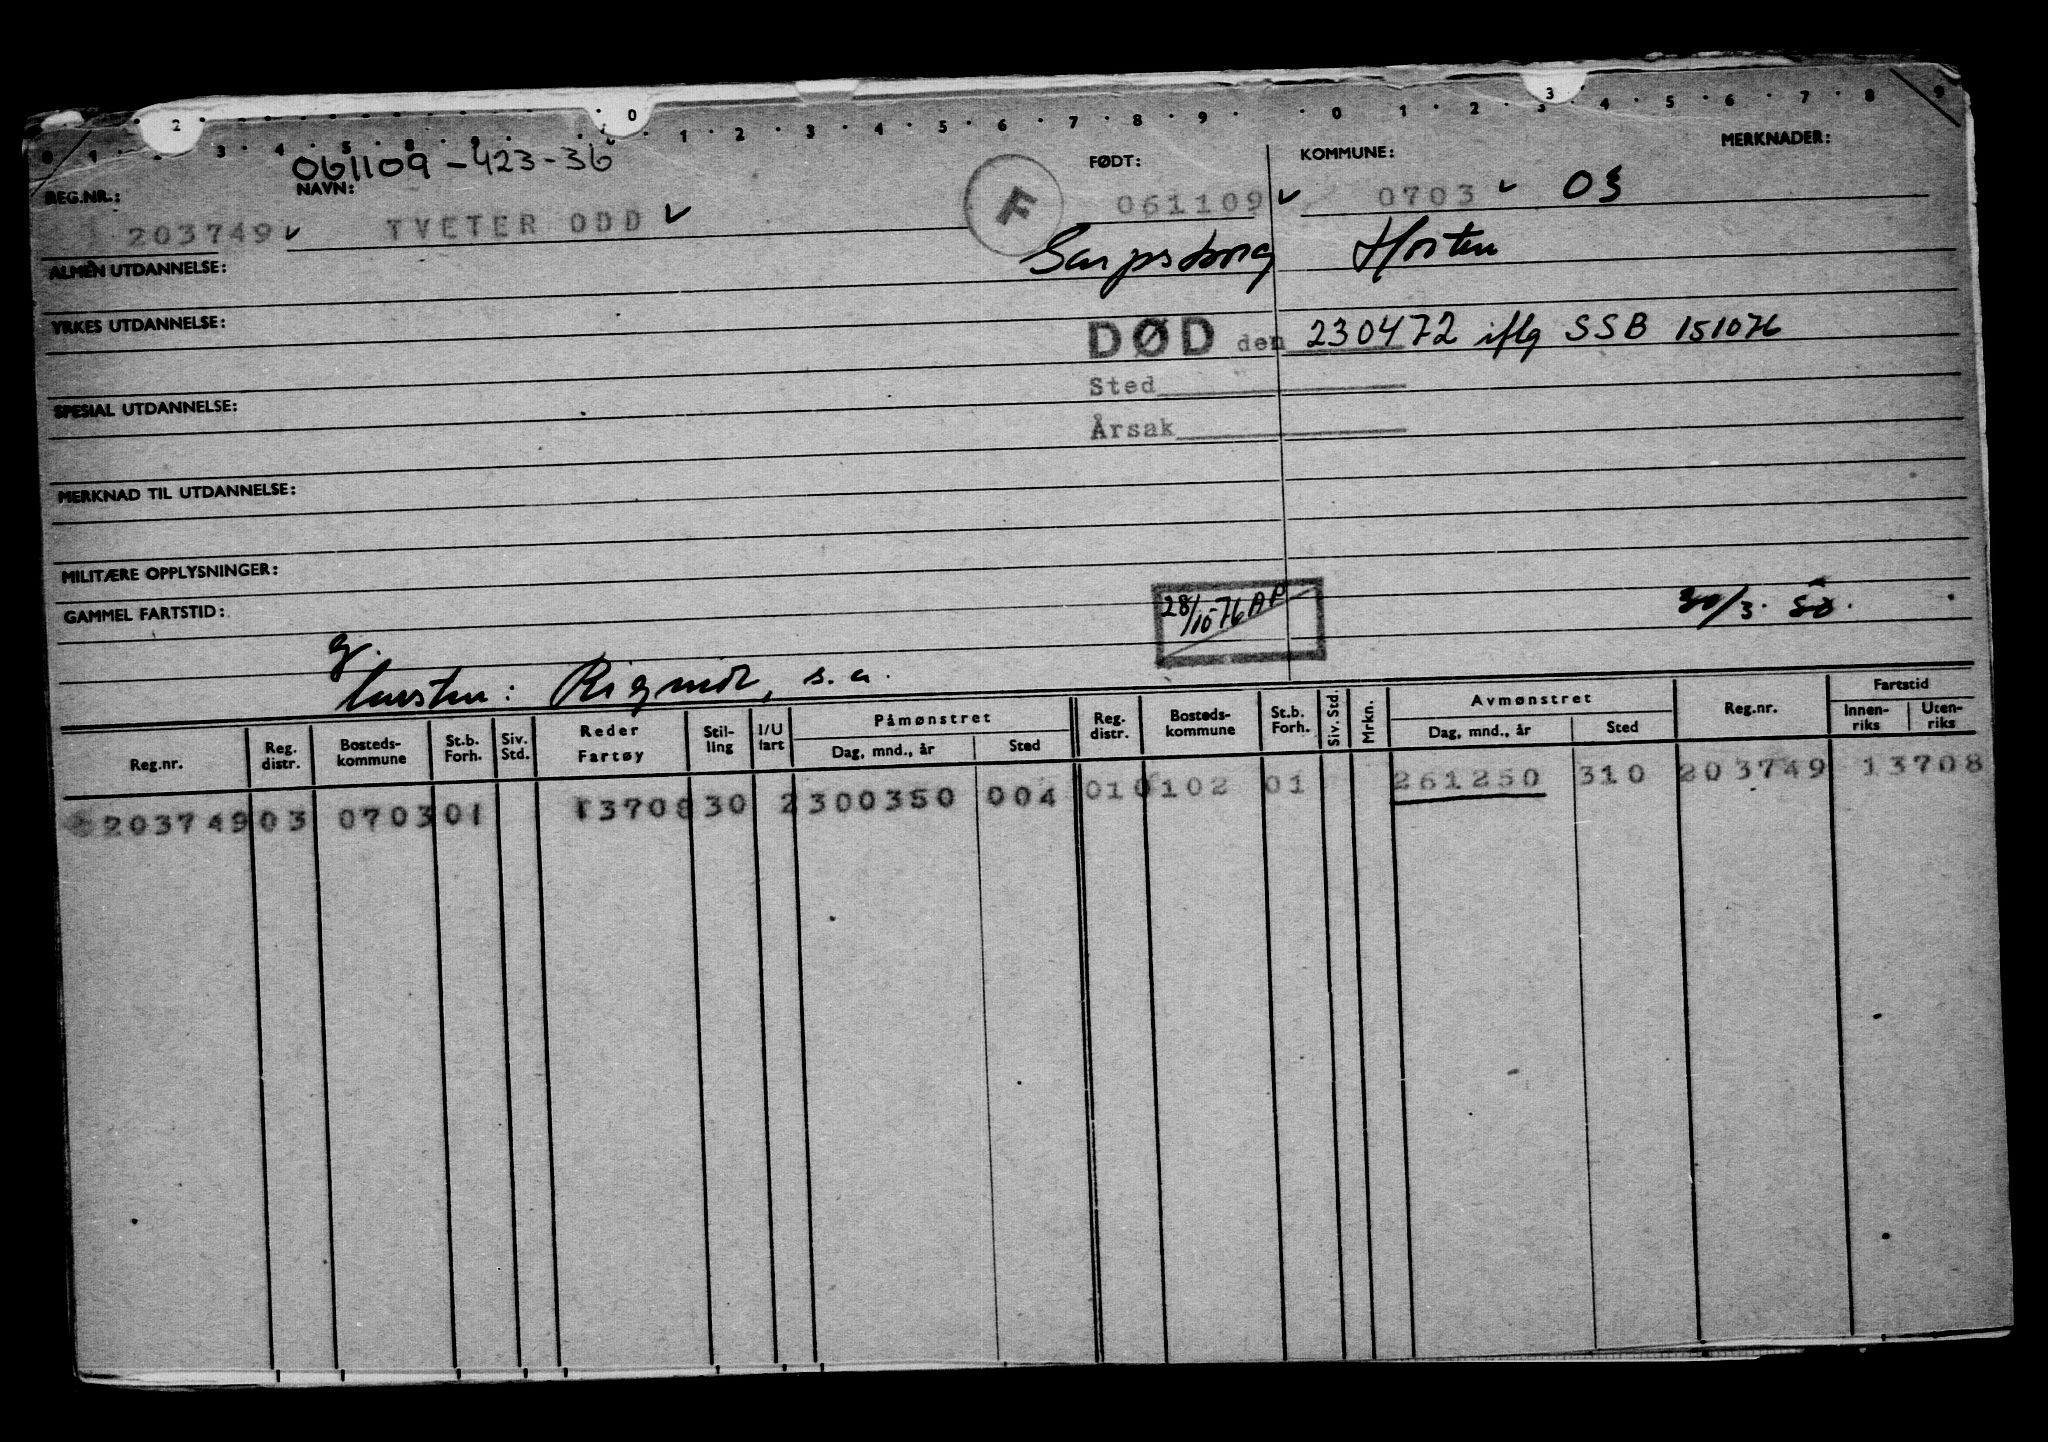 2 0 3
0 1 3 4 5 8 9 1 2 3 4 5 6 7 8 9 0 1 2 4 5 6 7 8 9
061109-423-36
REG.NR.: NAVN: FØDT: KOMMUNE: MERKNADER:
203749 TVETER ODD F 061109 0703 03
Sarpsborg Horten
ALMEN UTDANNELSE:
YRKES UTDANNELSE:
DØD den 230472 iflg SSB 151076
Sted
SPESIAL UTDANNELSE:
Årsak
MERKNAD TIL UTDANNELSE:
MILITÆRE OPPLYSNINGER:
GAMMEL FARTSTID:
28/10-76 AP
30/3. 50.
g.
Rigmor, s.a.
Reg.nr. Reg. distr. Bosteds-kommune St.b. Forh. Siv. Std. Reder Fartøy Stil-ling I/U fart Påmønstret Dag, mnd., år Sted Reg. distr. Bosteds-kommune St.b. Forh. Siv. Std. Mrkn. Avmønstret Dag, mnd., år Sted Reg.nr. Fartstid Innen-riks Uten-riks
203749 03 0703 01 13708 30 2 300350 004 010 0102 01 261250 310 203749 13708